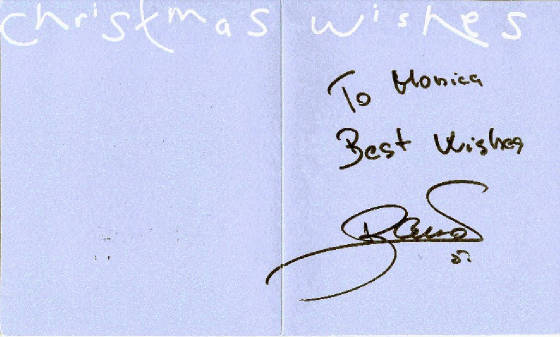 christmas wishes
To Monica
Best Wishes